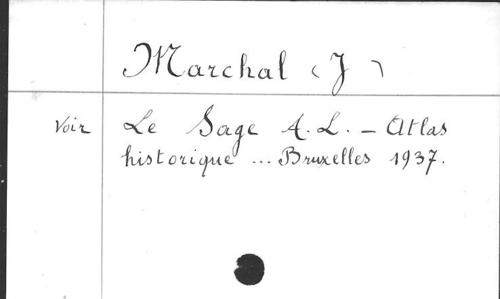 Marchal (J)
Voir Le Sage A.L. – Atlas
historique ... Bruxelles 1937.